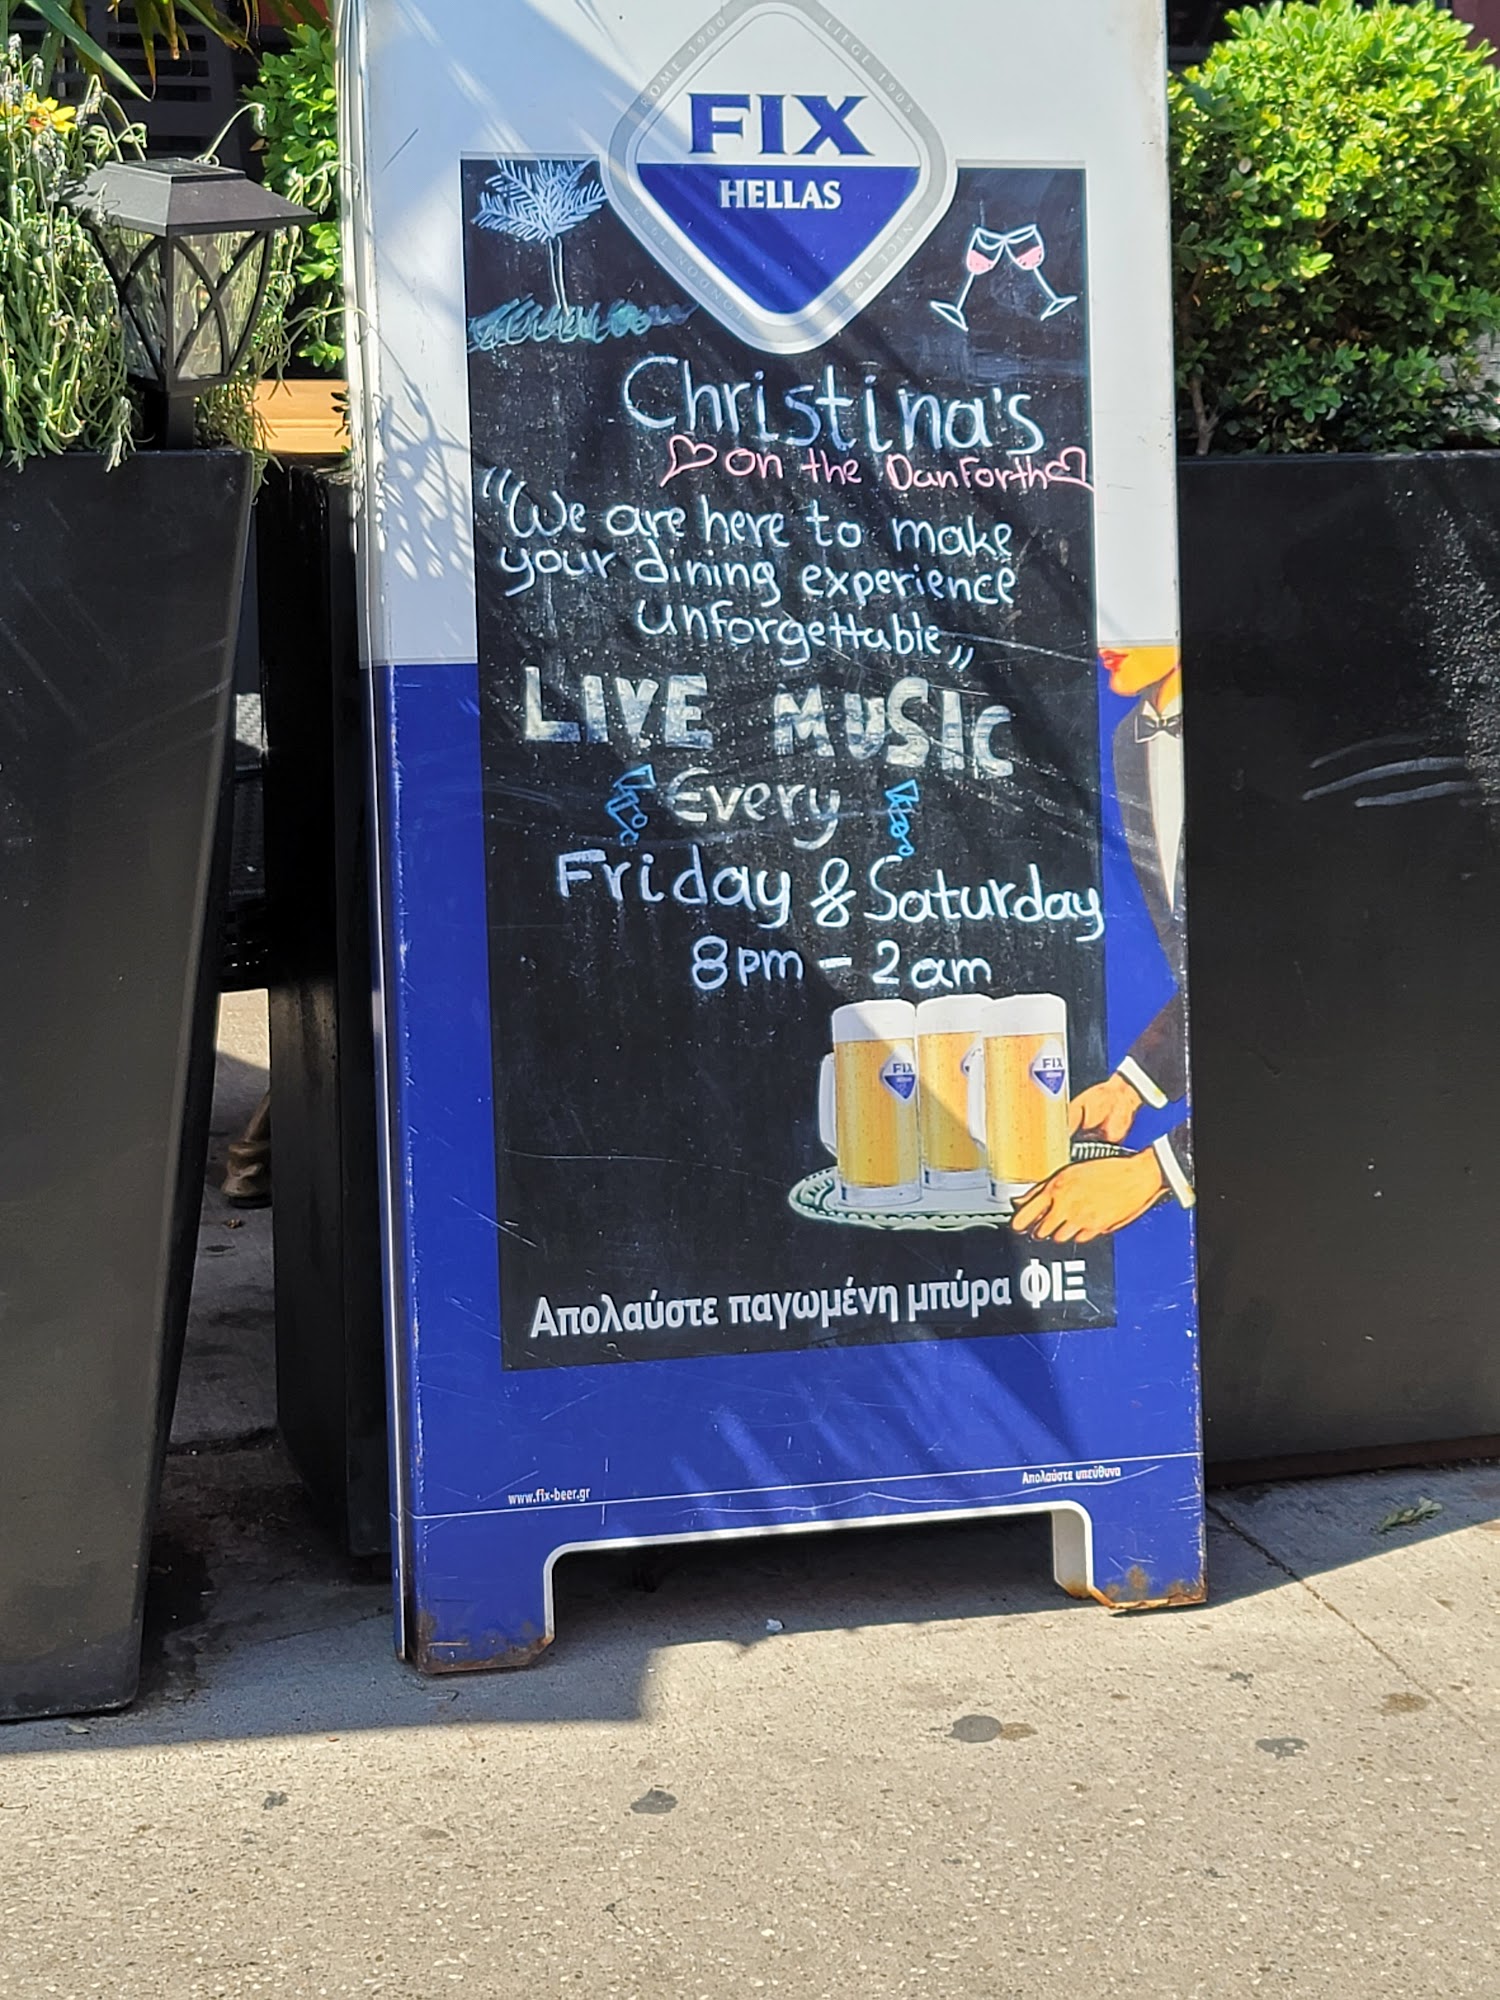 ROME 1900
LIEGE 1905
FIX
HELLAS
Christina's
on the DanForth
"We are here to make
your dining experience
unforgettable„
LIVE MUSIC
Every
Friday & Saturday
8pm – 2am
FIX
FIX
Απολαύστε παγωμένη μπύρα ΦΙΞ
www.fix-beer.gr
Απολαύστε υπεύθυνα